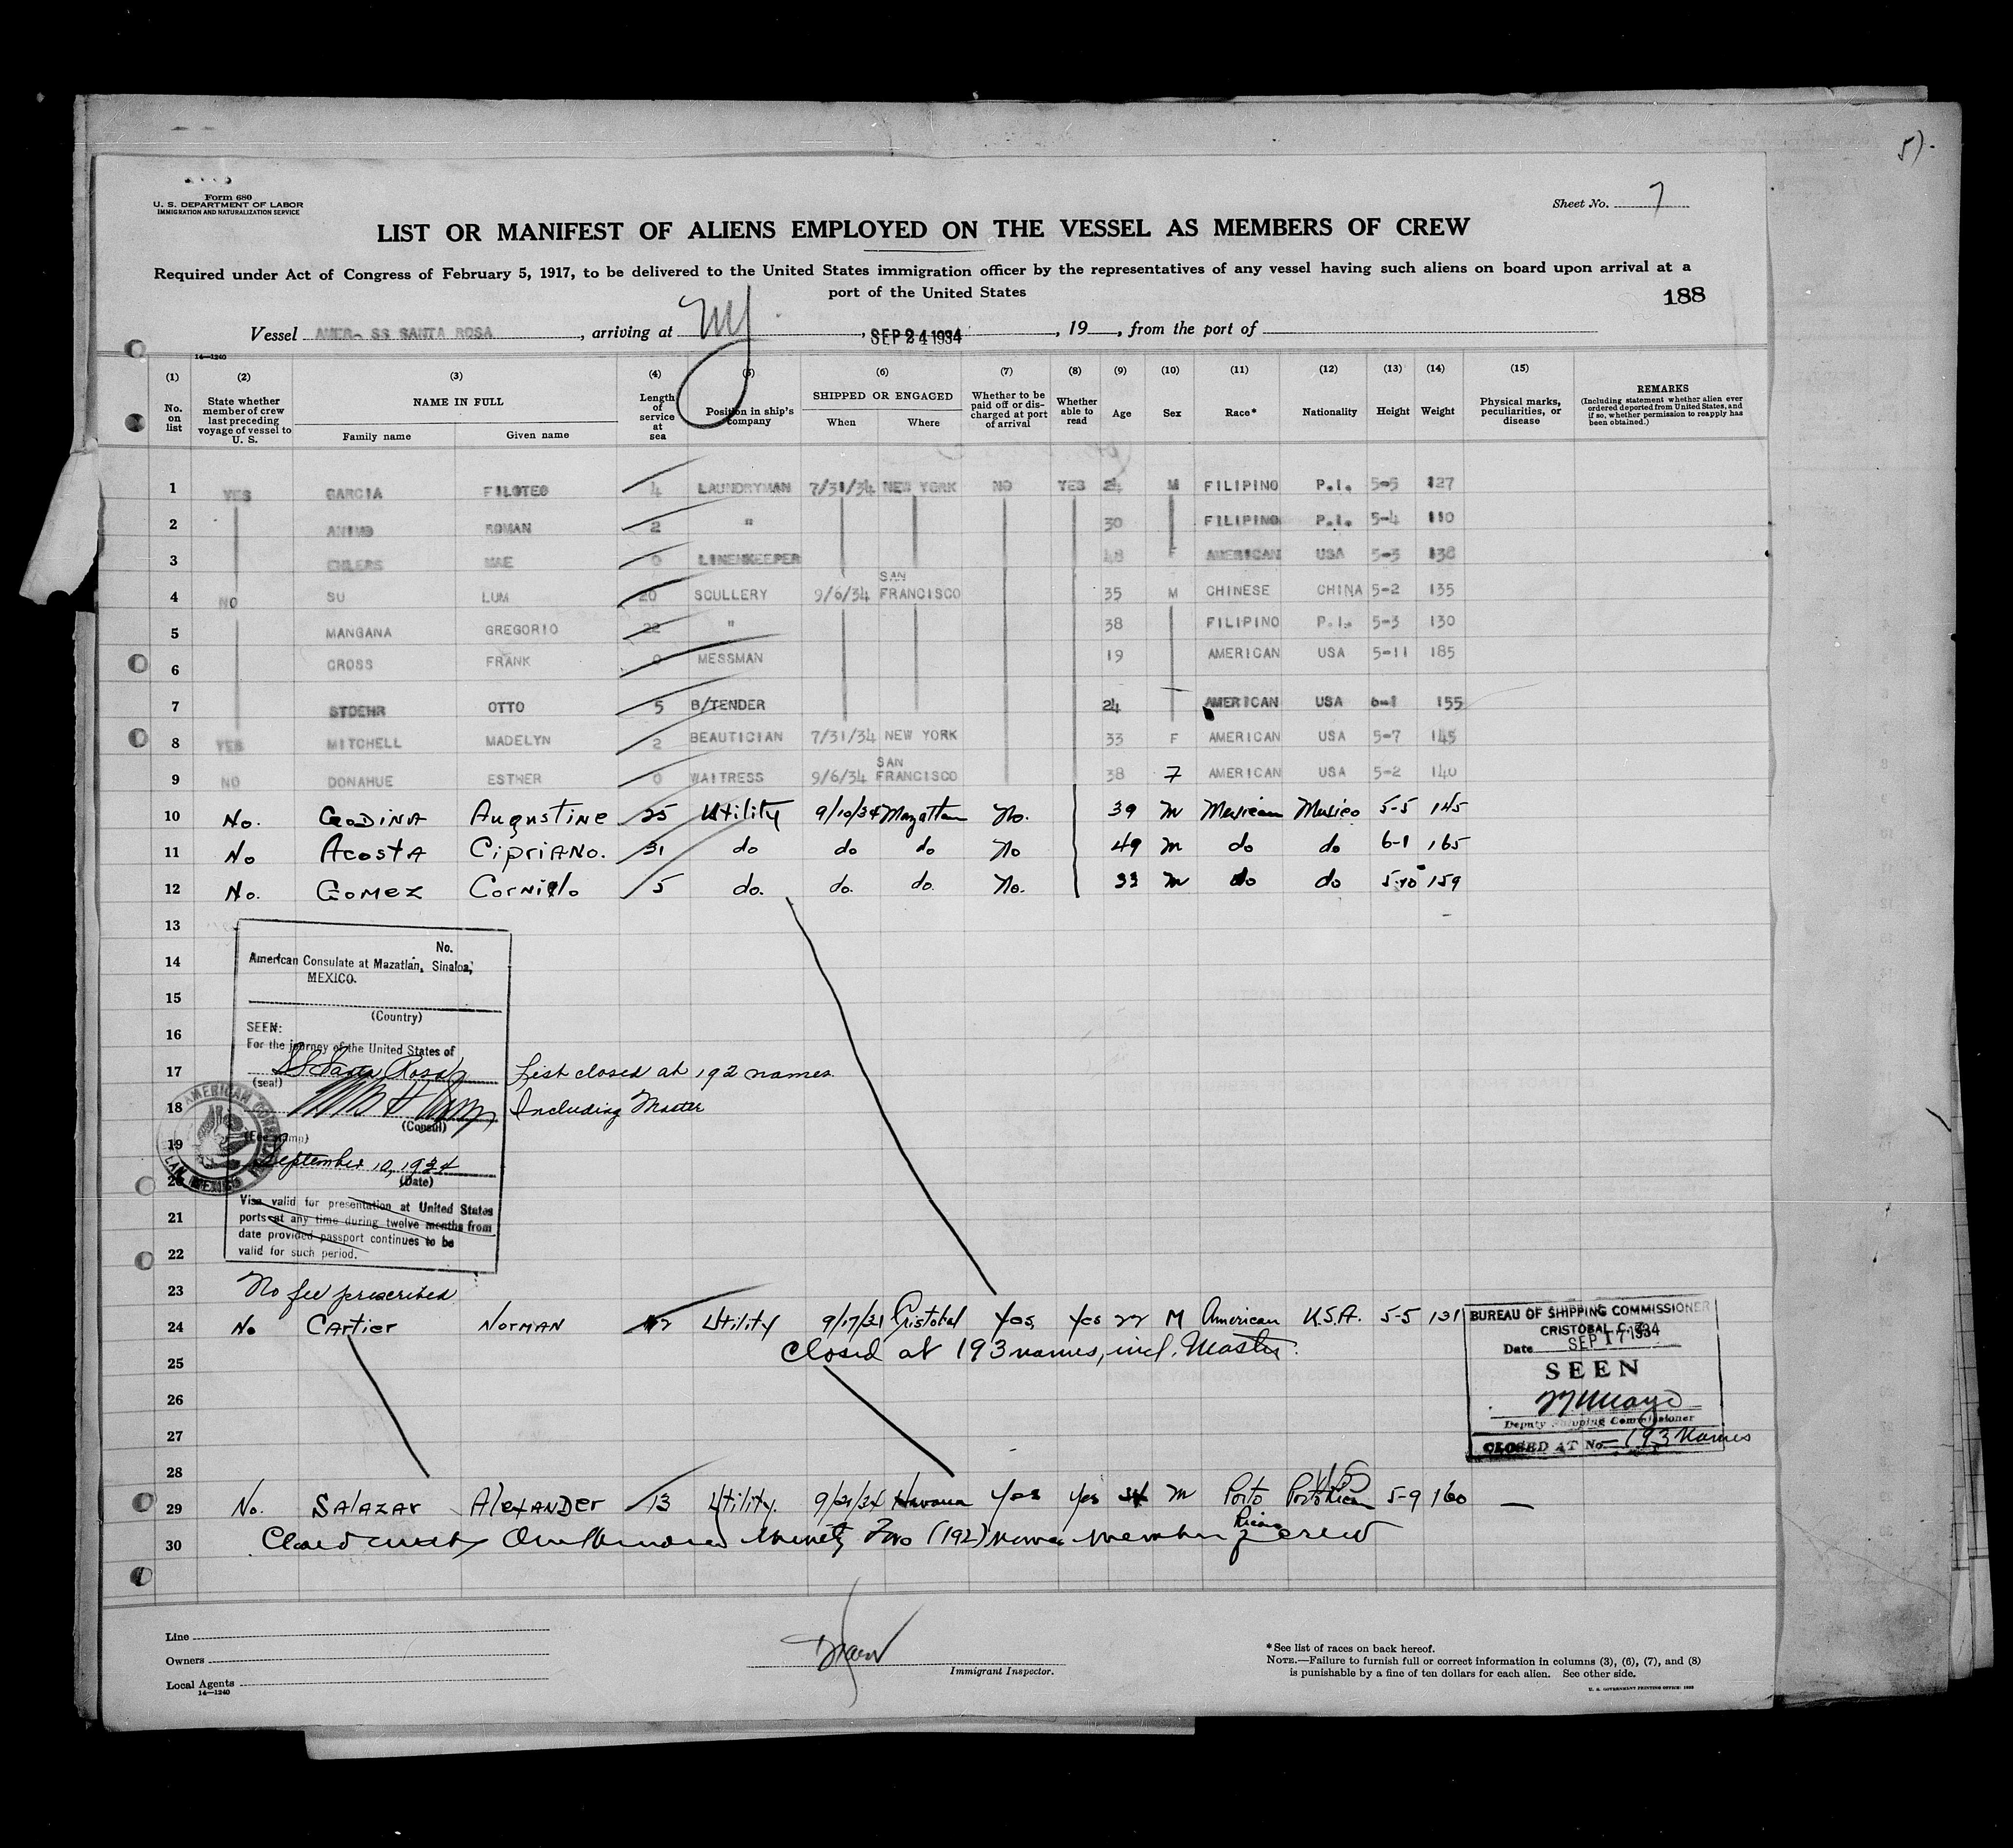 5).
Form 680
U. S. DEPARTMENT OF LABOR
IMMIGRATION AND NATURALIZATION SERVICE
Sheet No. 7
LIST OR MANIFEST OF ALIENS EMPLOYED ON THE VESSEL AS MEMBERS OF CREW
Required under Act of Congress of February 5, 1917, to be delivered to the United States immigration officer by the representatives of any vessel having such aliens on board upon arrival at a
port of the United States
188
Vessel AMER- SS SANTA ROSA, arriving at NY, SEP 24 1934, 19, from the port of
14—1240
(1) (2) (3) (4) (5) (6) (7) (8) (9) (10) (11) (12) (13) (14) (15)
No. on list
State whether member of crew last preceding voyage of vessel to U. S.
NAME IN FULL
Family name Given name
Length of service at sea
Position in ship's company
SHIPPED OR ENGAGED
When Where
Whether to be paid off or discharged at port of arrival
Whether able to read
Age
Sex
Race*
Nationality
Height
Weight
Physical marks, peculiarities, or disease
REMARKS
(Including statement whether alien ever ordered deported from United States, and if so, whether permission to reapply has been obtained.)
1 YES GARCIA FILOTEO 4 LAUNDRYMAN 7/31/34 NEW YORK NO YES 24 M FILIPINO P.I. 5-5 127
2 ANIMO ROMAN 2 " 30 FILIPINO P.I. 5-4 110
3 EHLERS MAE 0 LINENKEEPER 48 F AMERICAN USA 5-3 138
4 NO SU LUM 20 SCULLERY 9/6/34 SAN FRANCISCO 35 M CHINESE CHINA 5-2 135
5 MANGANA GREGORIO 22 " 38 FILIPINO P.I. 5-3 130
6 GROSS FRANK 0 MESSMAN 19 AMERICAN USA 5-11 185
7 STOEHR OTTO 5 B/TENDER 24 AMERICAN USA 6-1 155
8 YES MITCHELL MADELYN 2 BEAUTICIAN 7/31/34 NEW YORK 33 F AMERICAN USA 5-7 145
9 NO DONAHUE ESTHER 0 WAITRESS 9/6/34 SAN FRANCISCO 38 F AMERICAN USA 5-2 140
10 No. GODINA Augustine 25 Utility 9/10/34 Mazatlan No. 39 M Mexican Mexico 5-5 145
11 No Acosta Cipriano. 31 do do do No 49 M do do 6-1 165
12 No. Gomez 5 do. do. do. No. 33 M do do 5-10 159
13
14
15
16
17
18
19
20
21
22
No.
American Consulate at Mazatlan, Sinaloa,
MEXICO.
(Country)
SEEN:
For the journey of the United States of
SS Santa Rosa
(seal)
(Consul)
(Fee stamp)
September 10, 1934
(Date)
Visa valid for presentation at United States
ports at any time during twelve months from
date provided passport continues to be
valid for such period.
List closed at 192 names
Including Master
23 No fee prescribed
24 No Cartier Norman Utility Cristobal Yes, Yes 22 M American U.S.A. 5-5 131
25 Closed at 193 names, incl. Master.
26
27
28
BUREAU OF SHIPPING COMMISSIONER
CRISTOBAL C. Z.
Date SEP 17 1934
SEEN
Deputy Shipping Commissioner
CLOSED AT No. 193 Names
29 No. Salazar Alexander 13 Utility. 9/21/34 Havana Yes Yes M Porto Rican 5-9 160 —
30 Closed One Hundred Ninety Two (192) crew
Line
Owners
Local Agents
14—1240
Immigrant Inspector.
* See list of races on back hereof.
NOTE.—Failure to furnish full or correct information in columns (3), (6), (7), and (8)
is punishable by a fine of ten dollars for each alien. See other side.
U. S. GOVERNMENT PRINTING OFFICE: 1933